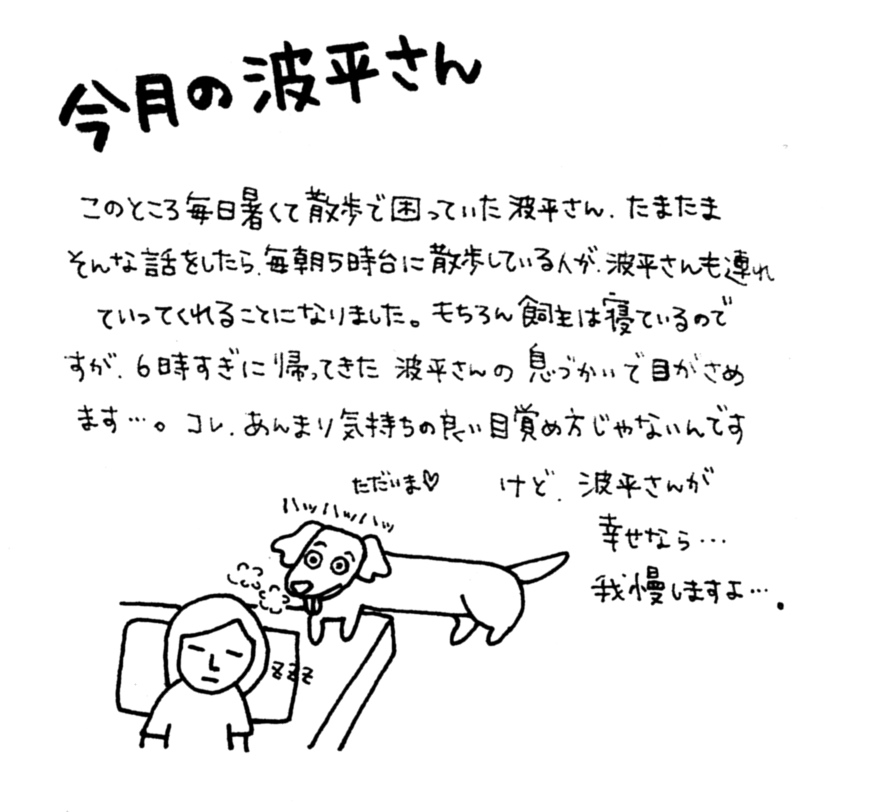 今月の波平さん
このところ毎日暑くて散歩で困っていた波平さん、たまたま
そんな話をしたら、毎朝5時台に散歩している人が、波平さんも連れ
ていってくれることになりました。もちろん飼主は寝ているので
すが、6時すぎに帰ってきた 波平さんの 息づかいで目がさめ
ます…。コレ、あんまり気持ちの良い目覚め方じゃないんです
けど、波平さんが
幸せなら…
我慢しますよ…。
ただいま♡
ハッハッハッ
zzz